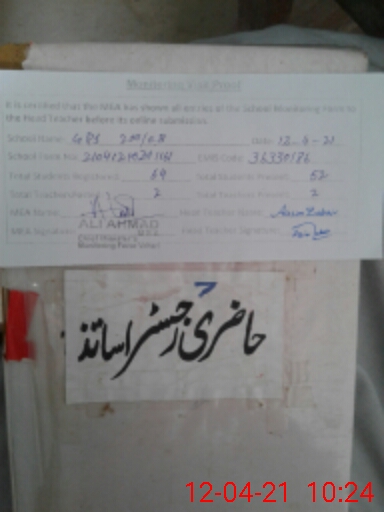 Monitoring Visit Proof
It is certified that the MEA has shown all entries in the School Monitoring Form to
the Head Teacher before its online submission.
School Name: GPS Date: 12-4-21
School Form No. EMIS Code: 36330186
Total Students Registered: 69 Total Students Present: 62
Total Teachers 2 Total Teachers Present: 2
MEA Name: Head Teacher Name:
ALI AHMAD
MEA Signature: M.E.A Head Teacher Signature:
Chief Minister's
Monitoring Force
حاضری رجسٹر اساتذہ
12-04-21 10:24